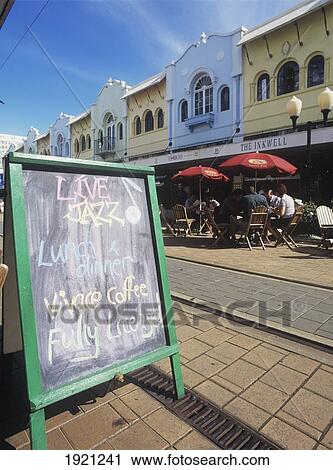 LIVE
JAZZ
Lunch &
dinner
Vivace Coffee
Fully
THE INKWELL
fotosearch
1921241 www.fotosearch.com